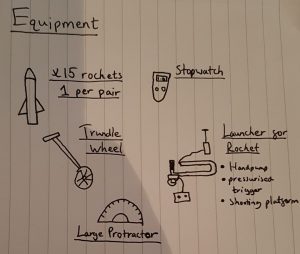 Equipment
x15 rockets
1 per pair
Stopwatch
Trundle
Wheel
Launcher for
Rocket
• Handpump
• pressurised
trigger
• Shooting platform
Large Protractor